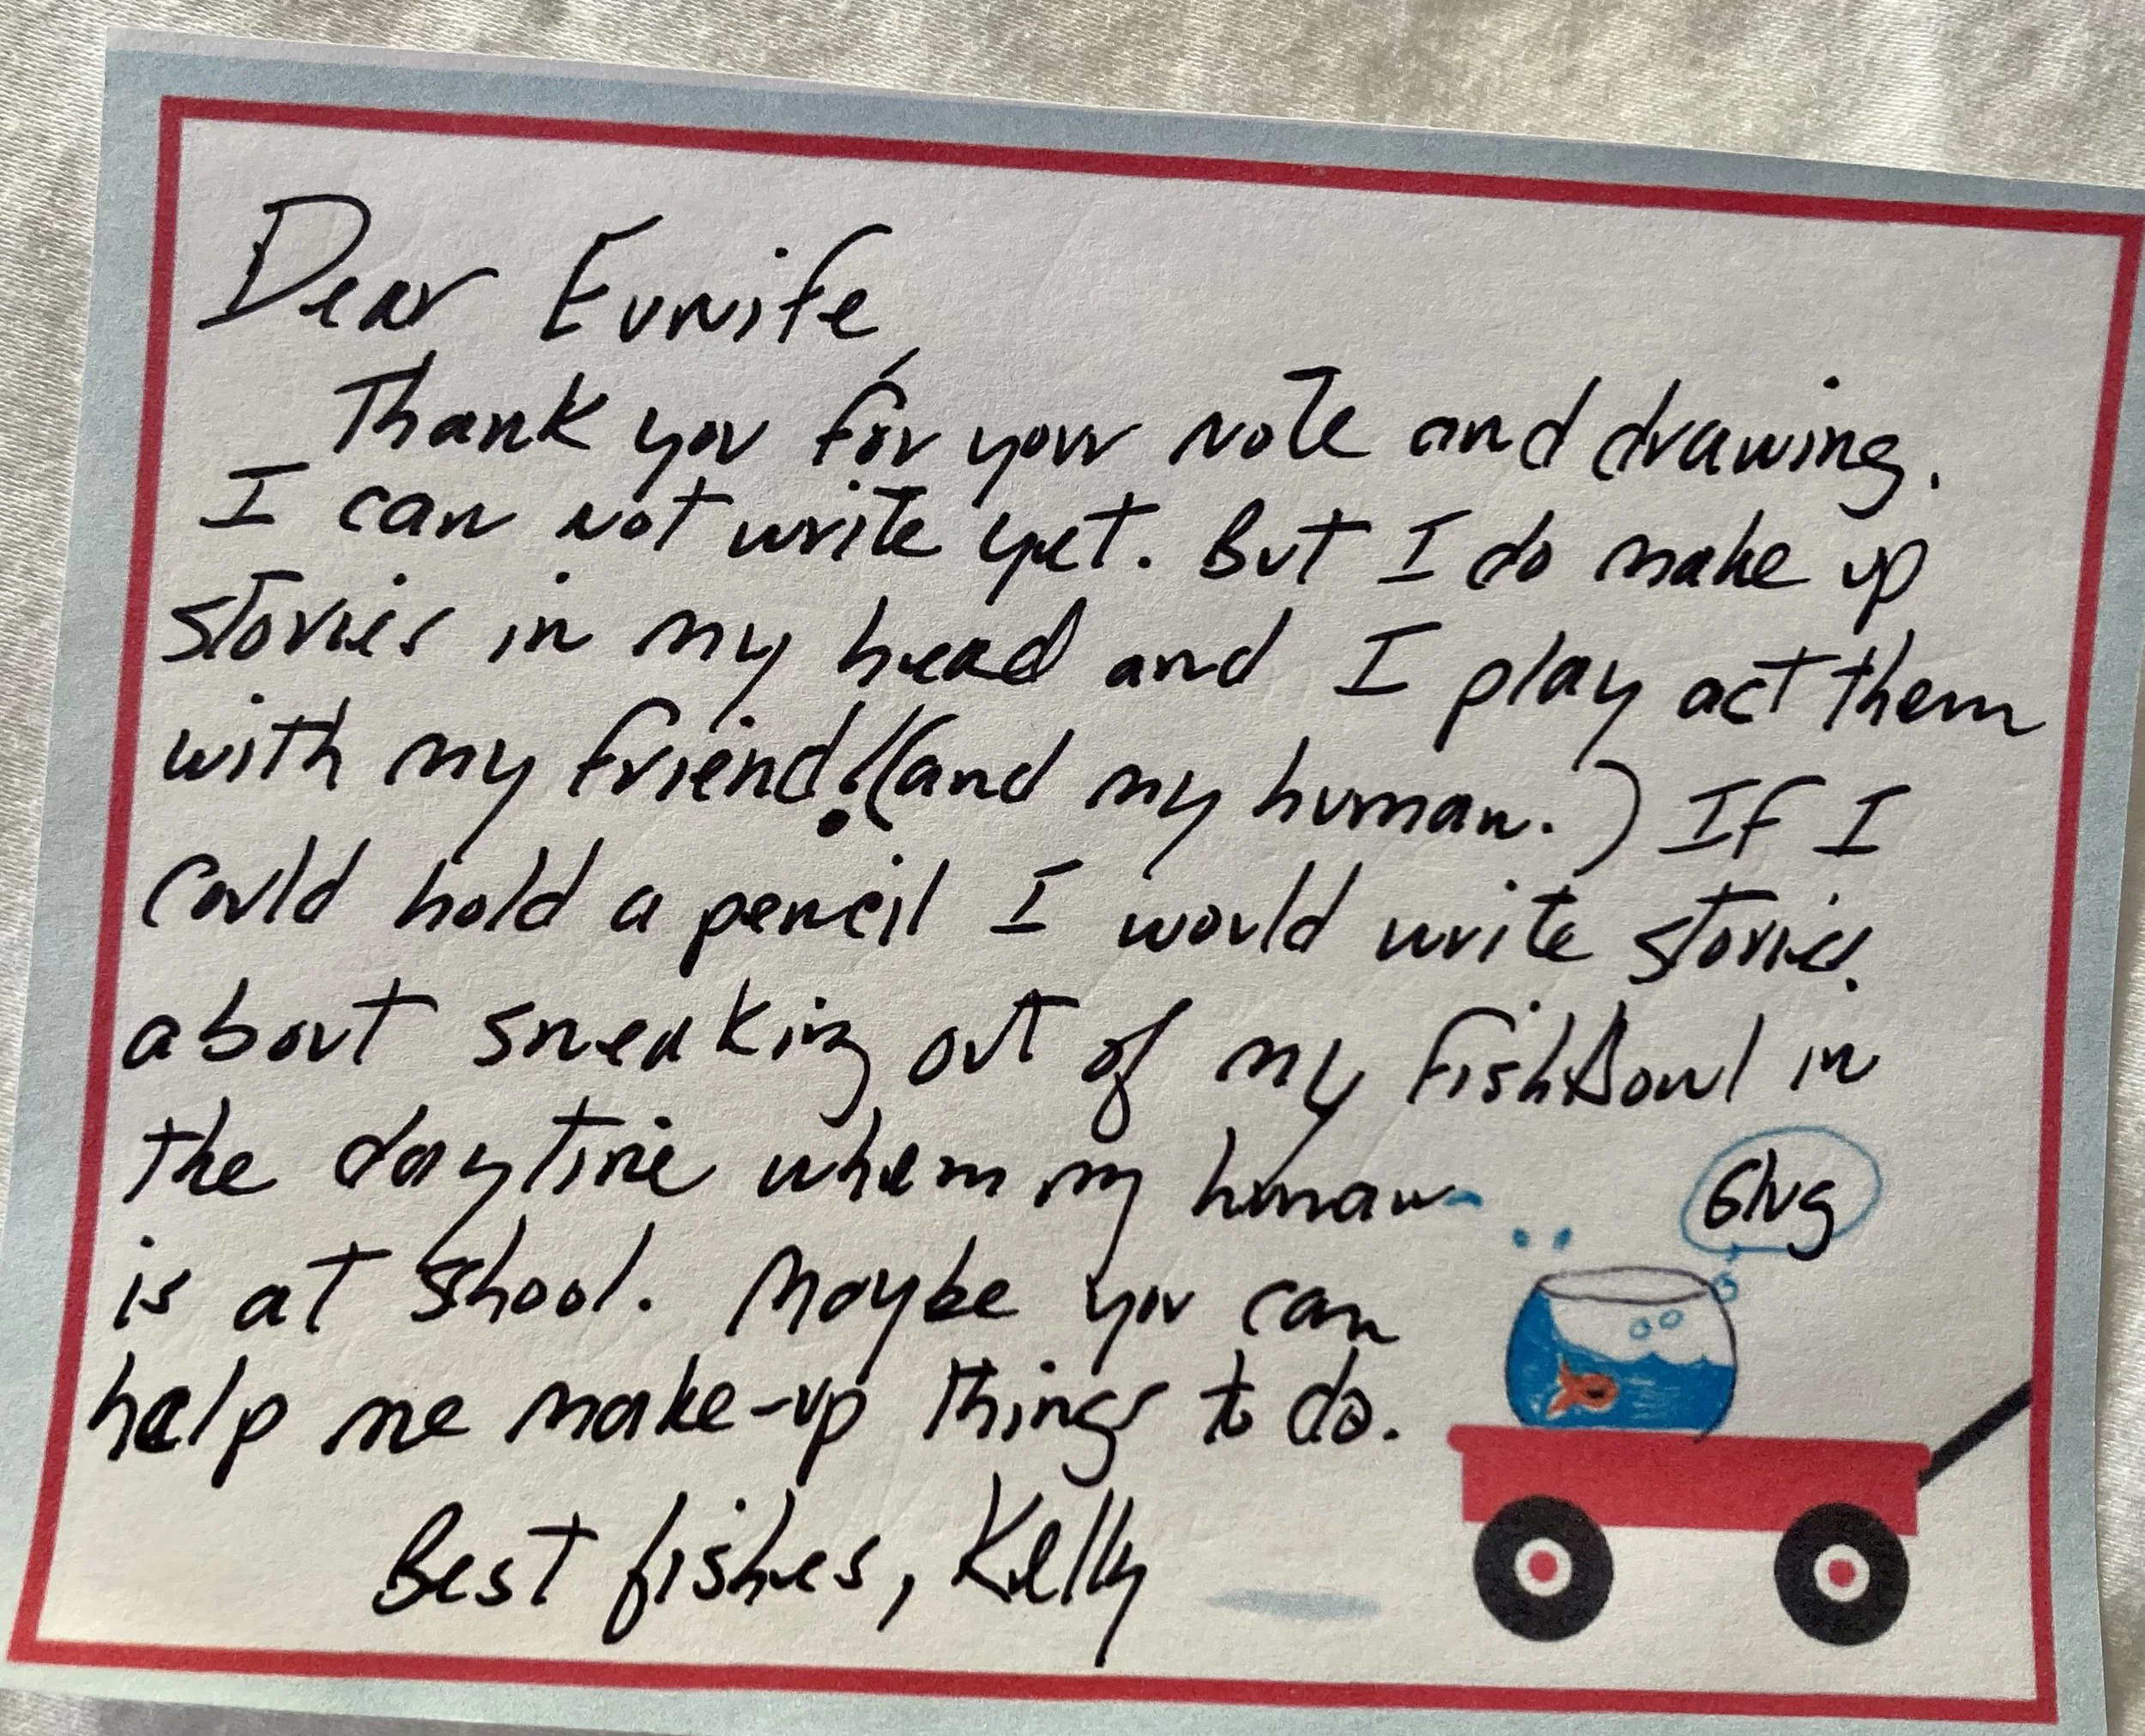 Dear Eunife,
Thank you for your note and drawing.
I can not write yet. But I do make up
stories in my head and I play act them
with my friend! (and my human.) If I
could hold a pencil I would write stories.
about sneaking out of my fishbowl in
the daytime when my human
is at shool. Maybe you can
help me make-up things to do.
Best fishes, Kelly
Glug